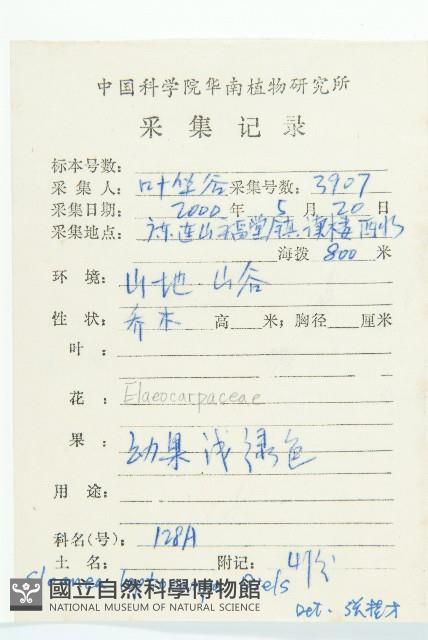 中国科学院华南植物研究所
采集记录
标本号数：
采集人：叶华谷 采集号数：3907
采集日期：2000年5月20日
采集地点：广东连山福堂镇 西水
海拨 800 米
环境：山地 山谷
性状：乔木 高 米；胸径 厘米
叶：
花：Elaeocarpaceae
果：幼果浅绿色
用途：
科名(号)：128A
土名： 附记：4份
Sloanea
國立自然科學博物館
NATIONAL MUSEUM OF NATURAL SCIENCE
Det.